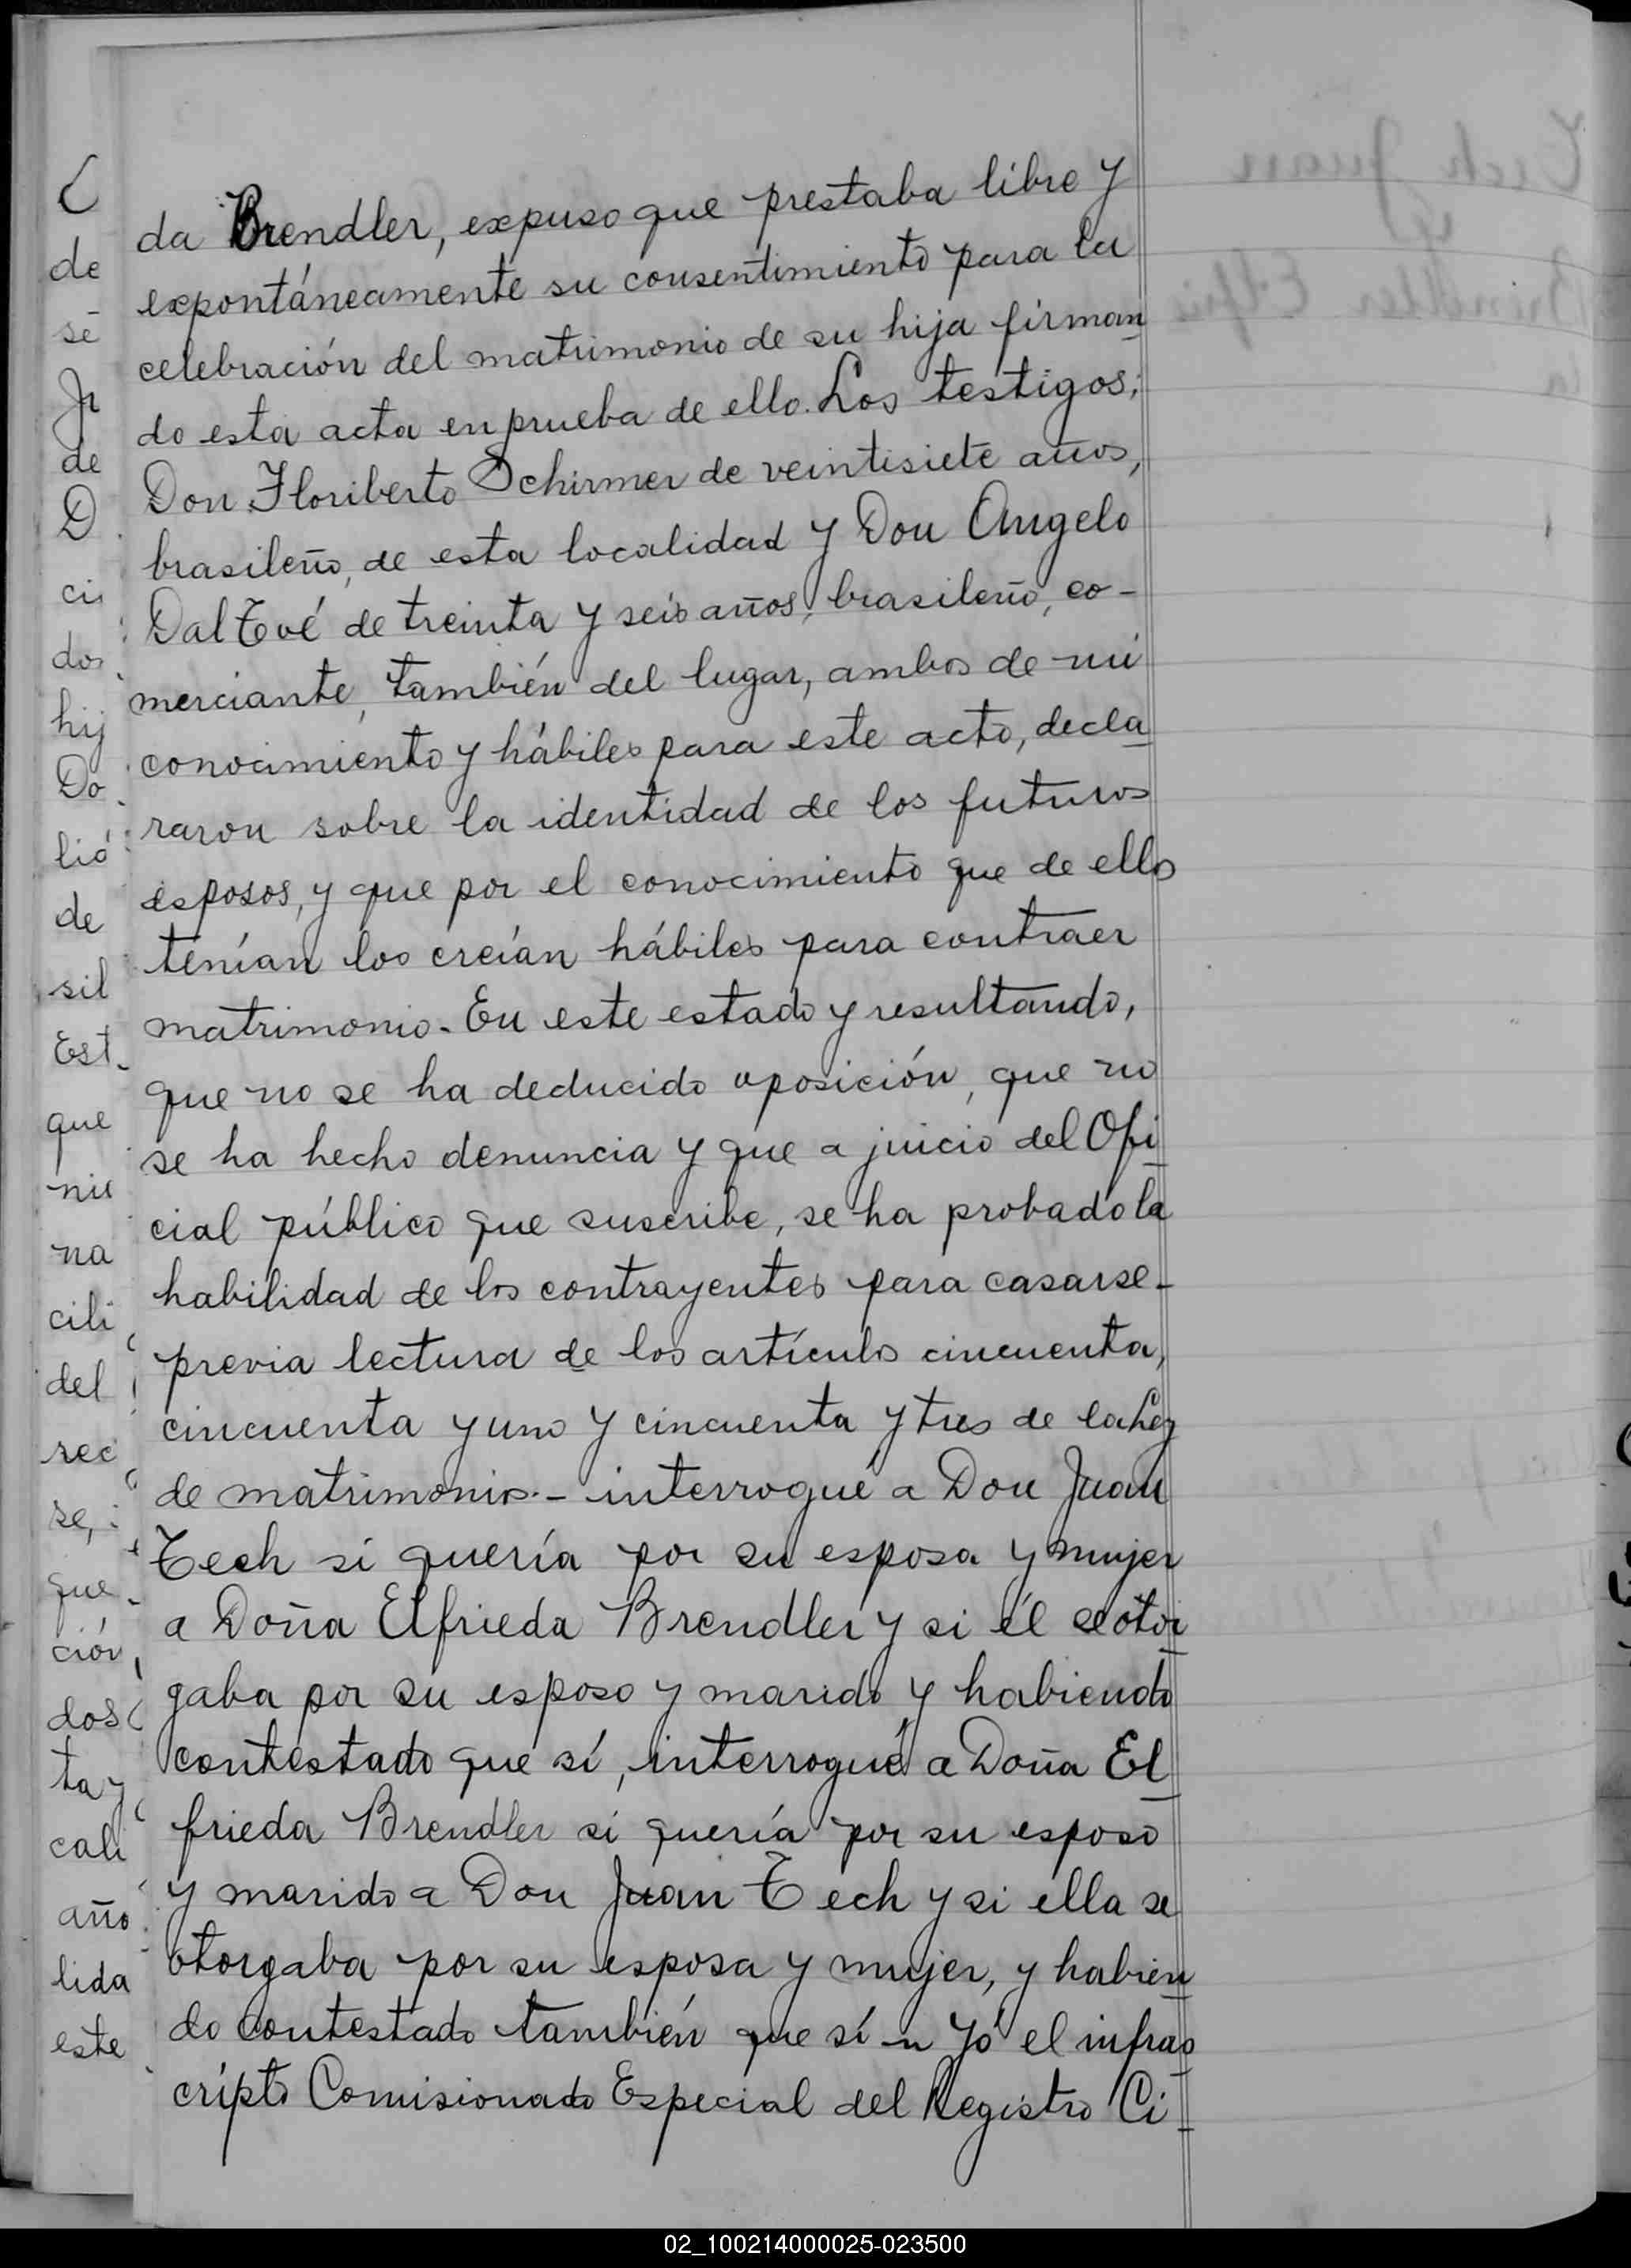 da Brendler, expuso que prestaba libre y
expontáneamente su consentimiento para la
celebración del matrimonio de su hija firman
do esta acta en prueba de ello. Los testigos;
Don Floriberto Schirmer de veintisiete años,
brasileño, de esta localidad y Don Angelo
Dal Toé de treinta y seis años, brasileño, co-
merciante, también del lugar, ambos de mi
conocimiento y hábiles para este acto, decla
raron sobre la identidad de los futuros
esposos, y que por el conocimiento que de ellos
tenían los creían hábiles para contraer
matrimonio. En este estado y resultando,
que no se ha deducido oposición, que no
se ha hecho denuncia y que a juicio del Ofi
cial público que suscribe, se ha probado la
habilidad de los contrayentes para casarse-
previa lectura de los artículos cincuenta,
cincuenta y uno y cincuenta y tres de la Ley
de matrimonio.- interrogué a Don Juan
Tech si quería por su esposa y mujer
a Doña Elfrieda Brendler y si él se otor
gaba por su esposo y marido y habiendo
contestado que sí, interrogué a Doña El
frieda Brendler si quería por su esposo
y marido a Don Juan Tech y si ella se
otorgaba por su esposa y mujer, y habien
do contestado también que sí - Yó el infras
cripto Comisionado Especial del Registro Ci
de
se
de
D
ci
dos
hij
Do
lió
de
sil
Est
que
nie
na
cili
del
rec
se,
que
ción
dos
ta y
cali
año
lida
este
Tech Juan
y
Brendler Elfrie
da
02_100214000025-023500